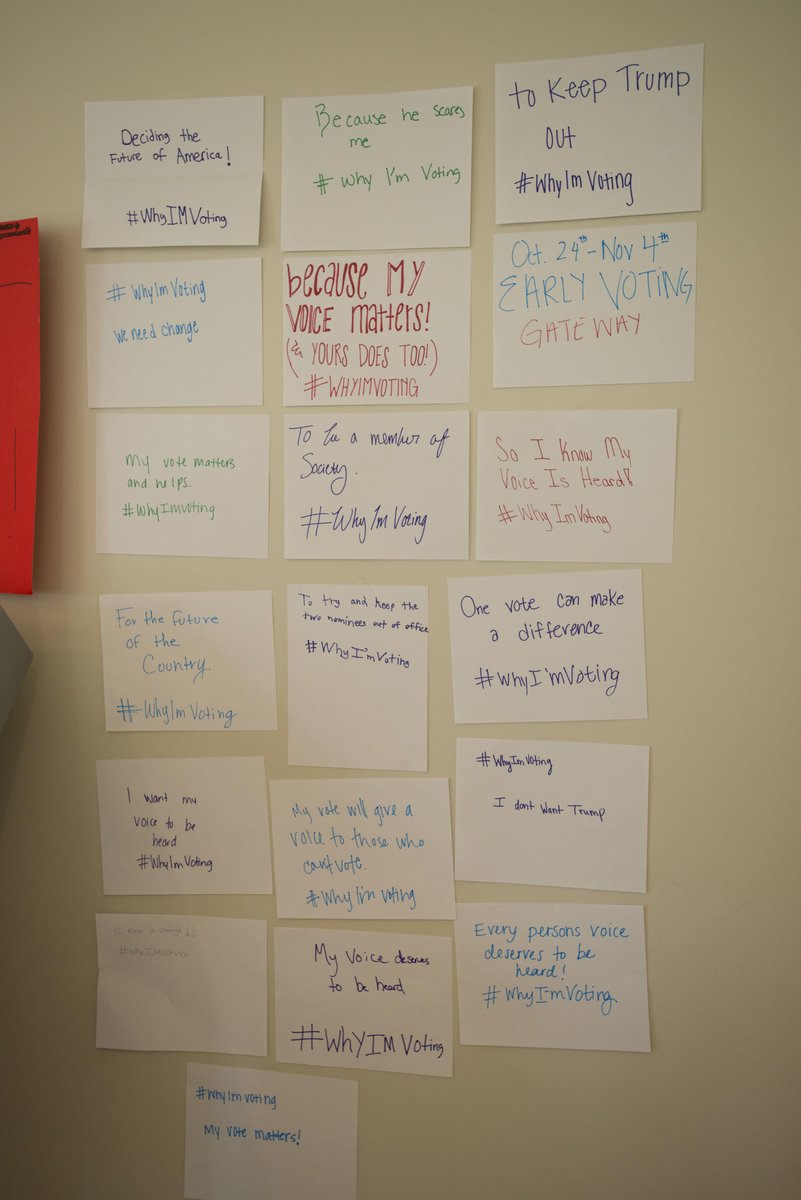 Deciding the
Future of America!
#WhyIMVoting
Because he scares
me
# Why I'm Voting
to Keep Trump
out
#WhyImVoting
#WhyImVoting
We need change
because MY
VOICE matters!
(& YOURS DOES TOO!)
#WHYIMVOTING
Oct. 24th-Nov 4th
EARLY VOTING
GATEWAY
My vote matters
and helps.
#WhyImvoting
To be a member of
Society.
#Why Im Voting
So I Know My
Voice Is Heard!
#Why ImVoting
For the future
of the
Country.
#WhyIm Voting
To try and keep the
two nominees out of office
#Why I'mVoting
One vote can make
a difference
#WhyI'mVoting
I want my
voice to be
heard
#WhyImVoting
My vote will give a
voice to those who
can't vote.
#Why I'm voting
#WhyImVoting
I dont Want Trump
To Make a change!!
#WhyIMVoting
My Voice deserves
to be heard
#WhYIM Voting
Every persons voice
deserves to be
heard!
#WhyI'mVoting
#WhyImvoting
My vote matters!